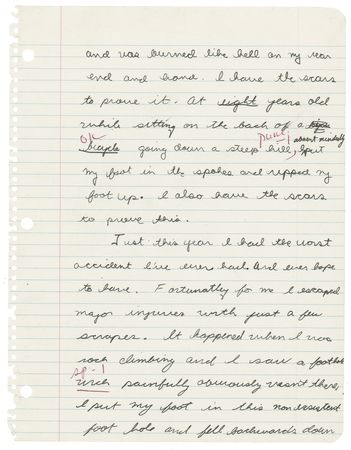 and was burned like hell on my rear
end and hand. I have the scars
to prove it. At eight years old
while sitting on the back of a
punc - 1 absent mindedly
bicycle going down a steep hill, I put
my foot in the spokes and ripped my
foot up. I also have the scars
to prove this.
Just this year I had the worst
accident I've ever had. And ever hope
to have. Fortunatley for me I escaped
major injuries with just a few
scrapes. It happened when I was
rock climbing and I saw a foothold
sp - 1
wich painfully obviously wasn't there,
I put my foot in this nonexistent
foot hold and fell backwards down